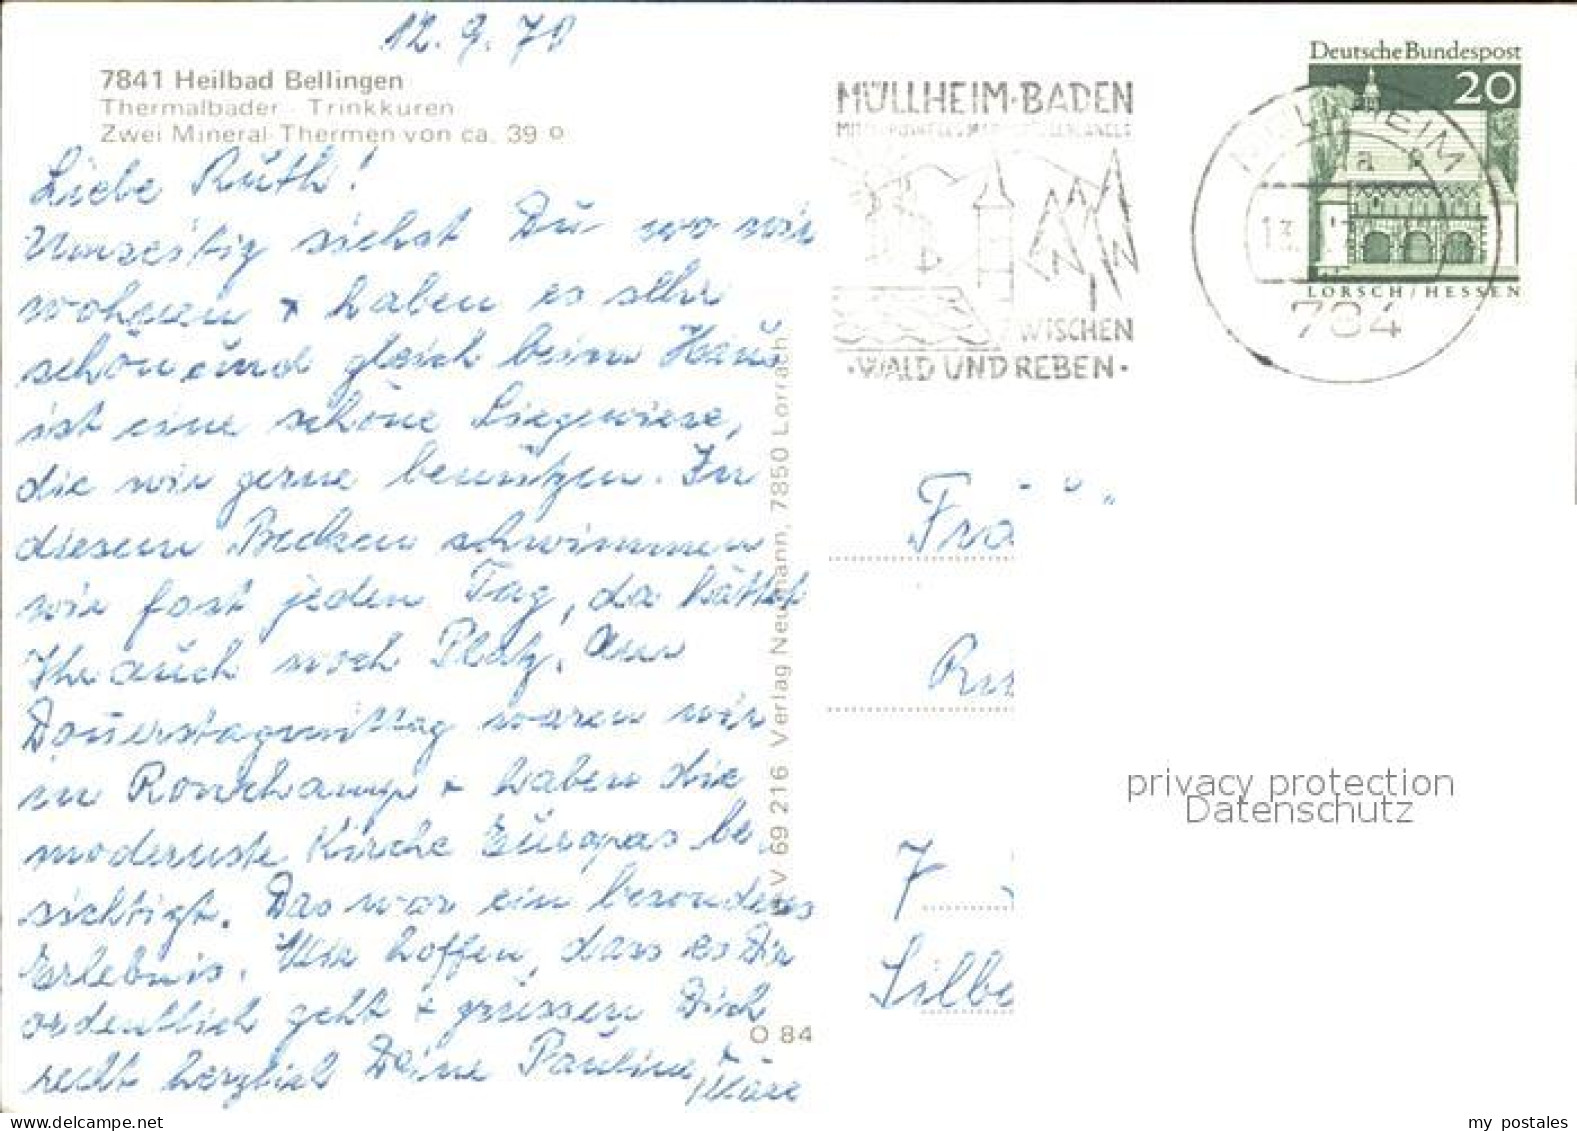 12. 9. 70
7841 Heilbad Bellingen
Thermalbäder - Trinkkuren
Zwei Mineral-Thermen von ca. 39 º
Liebe Ruth!
Umseitig siehst Du wo wir
wohnen + haben es sehr
schön und gleich beim Haus
ist eine schöne Liegewiese,
die wir gerne benützen. In
diesem Becken schwimmen
wir fast jeden Tag, da hättet
Ihr auch noch Platz. Am
Donnerstagmittag waren wir
in Ronchamp + haben die
modernste Kirche Europas be
sichtigt. Das war ein besonderes
Erlebnis. Wir hoffen, dass es Dir
ordentlich geht + grüssen Dich
recht herzlich Deine Pauline +
V 69 216 Verlag Neumann, 7850 Lörrach
O 84
MÜLLHEIM·BADEN
ZWISCHEN
·WALD UND REBEN·
MÜLLHEIM
13.
784
Deutsche Bundespost
20
LORSCH / HESSEN
7
Silbe
privacy protection
Datenschutz
my postales